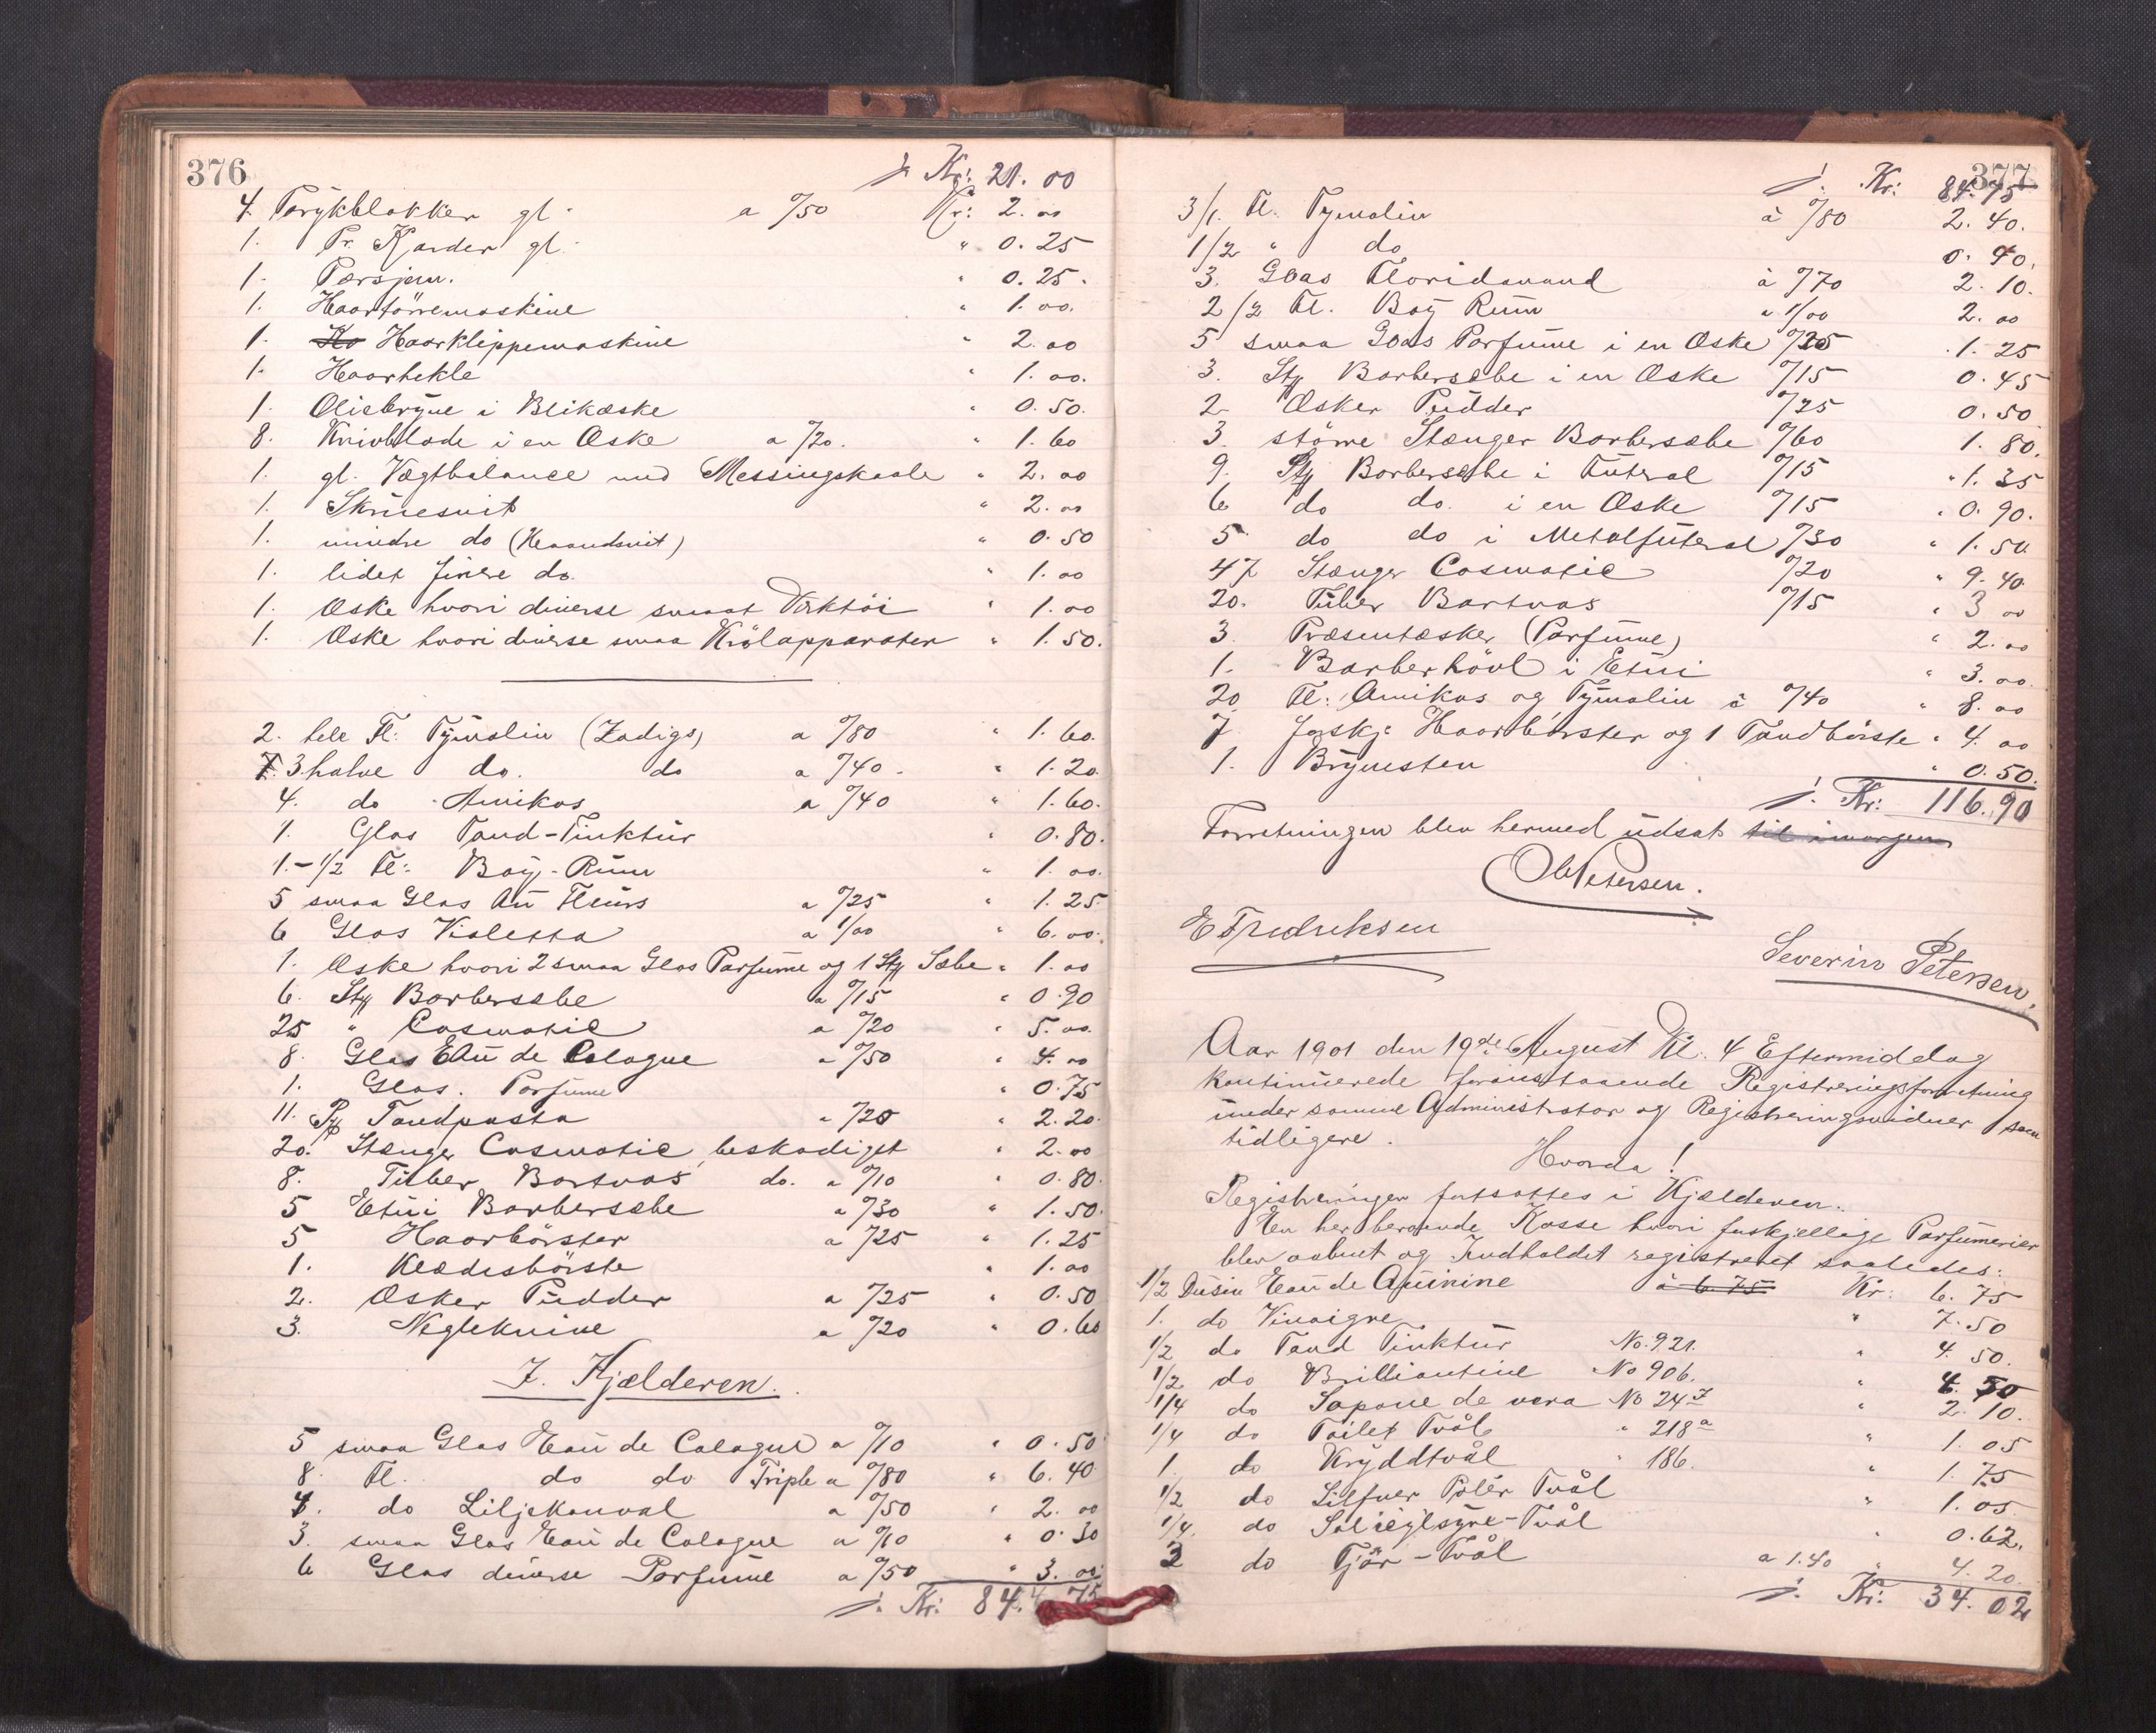 376
/. Kr: 21.00
4. Parykblokker gl. a 0/50 Kr: 2.00
1. Pr. Karder gl. " 0.25
1. Persjern. " 0.25.
1. Haartörremaskine " 1.00.
1. Ha Haarklippemaskine " 2.00
1. Haarhekle " 1.00.
1. Oliebryne i Blikæske " 0.50.
8. Knivblade i en Æske a 0/20. " 1.60
1. gl. Vægtbalance med Messingskaale " 2.00
1. Skruesnit " 2.00
1. mindre do (Haandsnit) " 0.50
1. lidet finere do. " 1.00
1. Æske hvori diverse smaat Værktöi " 1.00
1. Æske hvori diverse smaa Krölapparater " 1.50.
2. hele Fl: Tymolin (Zadigs) a 0/80 " 1.60.
3 halve do. do a 0/40. " 1.20.
4. do Amikos a 0/40 " 1.60.
1. Glas Tand-Tinktur " 0.80.
1.-1/2 Fl: Bay-Rum " 1.00.
5 smaa Glas Au Fleurs a 0/25 " 1.25
6 Glas Violetta a 1/00 " 6.00.
1. Æske hvori 2 smaa Glas Parfume og 1 Stk Sæbe " 1.00
6. Stk Barbersæbe a 0/15 " 0.90
25 " Cosmatic a 0/20 " 5.00.
8. Glas Eau de Cologne a 0/50 " 4.00
1. Glas. Parfume " 0.75
11. Pk Tandpasta " 0/20 " 2.20.
20. Stænger Cosmatic, beskadiget " 2.00
8. Tuber Bartvox do. a 0/10 " 0.80.
5 Etui Barbersæbe a 0/30 " 1.50.
5 Haarbörster a 0/25 " 1.25
1. Klædesbörste " 1.00
2. Æsker Pudder a 0/25 " 0.50
3. Negleknive a 0/20 " 0.60
I. Kjælderen.
5 smaa Glas Eau de Cologne a 0/10 " 0.50
8. Fl. do do Triple a 0/80 " 6.40
4. do Liljekonval a 0/50 " 2.00
3. smaa Glas Eau de Cologne a 0/10 " 0.30
6 Glas diverse Parfume a 0/50 " 3.00
/. Kr: 84.75
377
/. Kr: 84.75
3/1. Fl. Tymolin à 0/80 2.40.
1/2 " do 0.40.
3. Glas Floridavand à 0/70 2.10.
2/2 Fl. Bay Rum " 1/00 2.00
5 smaa Glas Parfume i en Æske 0/25 1.25
3. Stk Barbersæbe i en Æske 0/15 0.45
2 Æsker Pudder 0/25 0.50
3. större Stænger Barbersæbe 0/60 1.80.
9. Stk Barbersæbe i Futeral 0/15 " 1.35
6 do do. i en Æske 0/15 " 0.90.
5. do do i Metalfuteral 0/30 " 1.50.
47 Stænger Cosmatic 0/20 " 9.40
20. Tuber Bartvox 0/15 " 3 00
3. Præsentæsker (Parfume) " 2.00
1. Barberhövl i Etui " 3.00.
20 Fl: Amikos og Tymolin à 0/40 " 8.00
7 forskj: Haarbörster og 1 Tandbörste " 4.00
1. Brynesten " 0.50.
/. Kr: 116.90
Forretningen blev hermed udsat til imorgen
Ole Petersen.
E Fredriksen
Severin Petersen.
Aar 1901 den 19de August Kl. 4 Eftermiddag
kontinuerede foranstaaende Registreringsforretning
under samme Administrator og Registreringsvidner som
tidligere.
Hvorda!
Registreringen fortsattes i Kjælderen.
En her beroende Kasse hvori forskjellige Parfumerier
blev aabnet og Indholdet registreret saaledes:
1/2 Dusin Eau de Quinine à 6.75 Kr: 6.75
1. do Vinaigre " 7.50
1/2 do Tand Tinktur No. 921. " 4.50.
1/2 do Brilliantine No 906. " 4.50
1/4 do Sapone de vera No 247 " 2.10.
1/4 do Toilet Tvål " 218a " 1.05
1. do Kryddtvål " 186. " 1.75
1/2 do Silfver Polér Tvål " 1.05
1/4. do Salicylsyre-Tvål " 0.62.
3 do Tjär-Tvål a 1.40 " 4.20.
/. Kr: 34.02